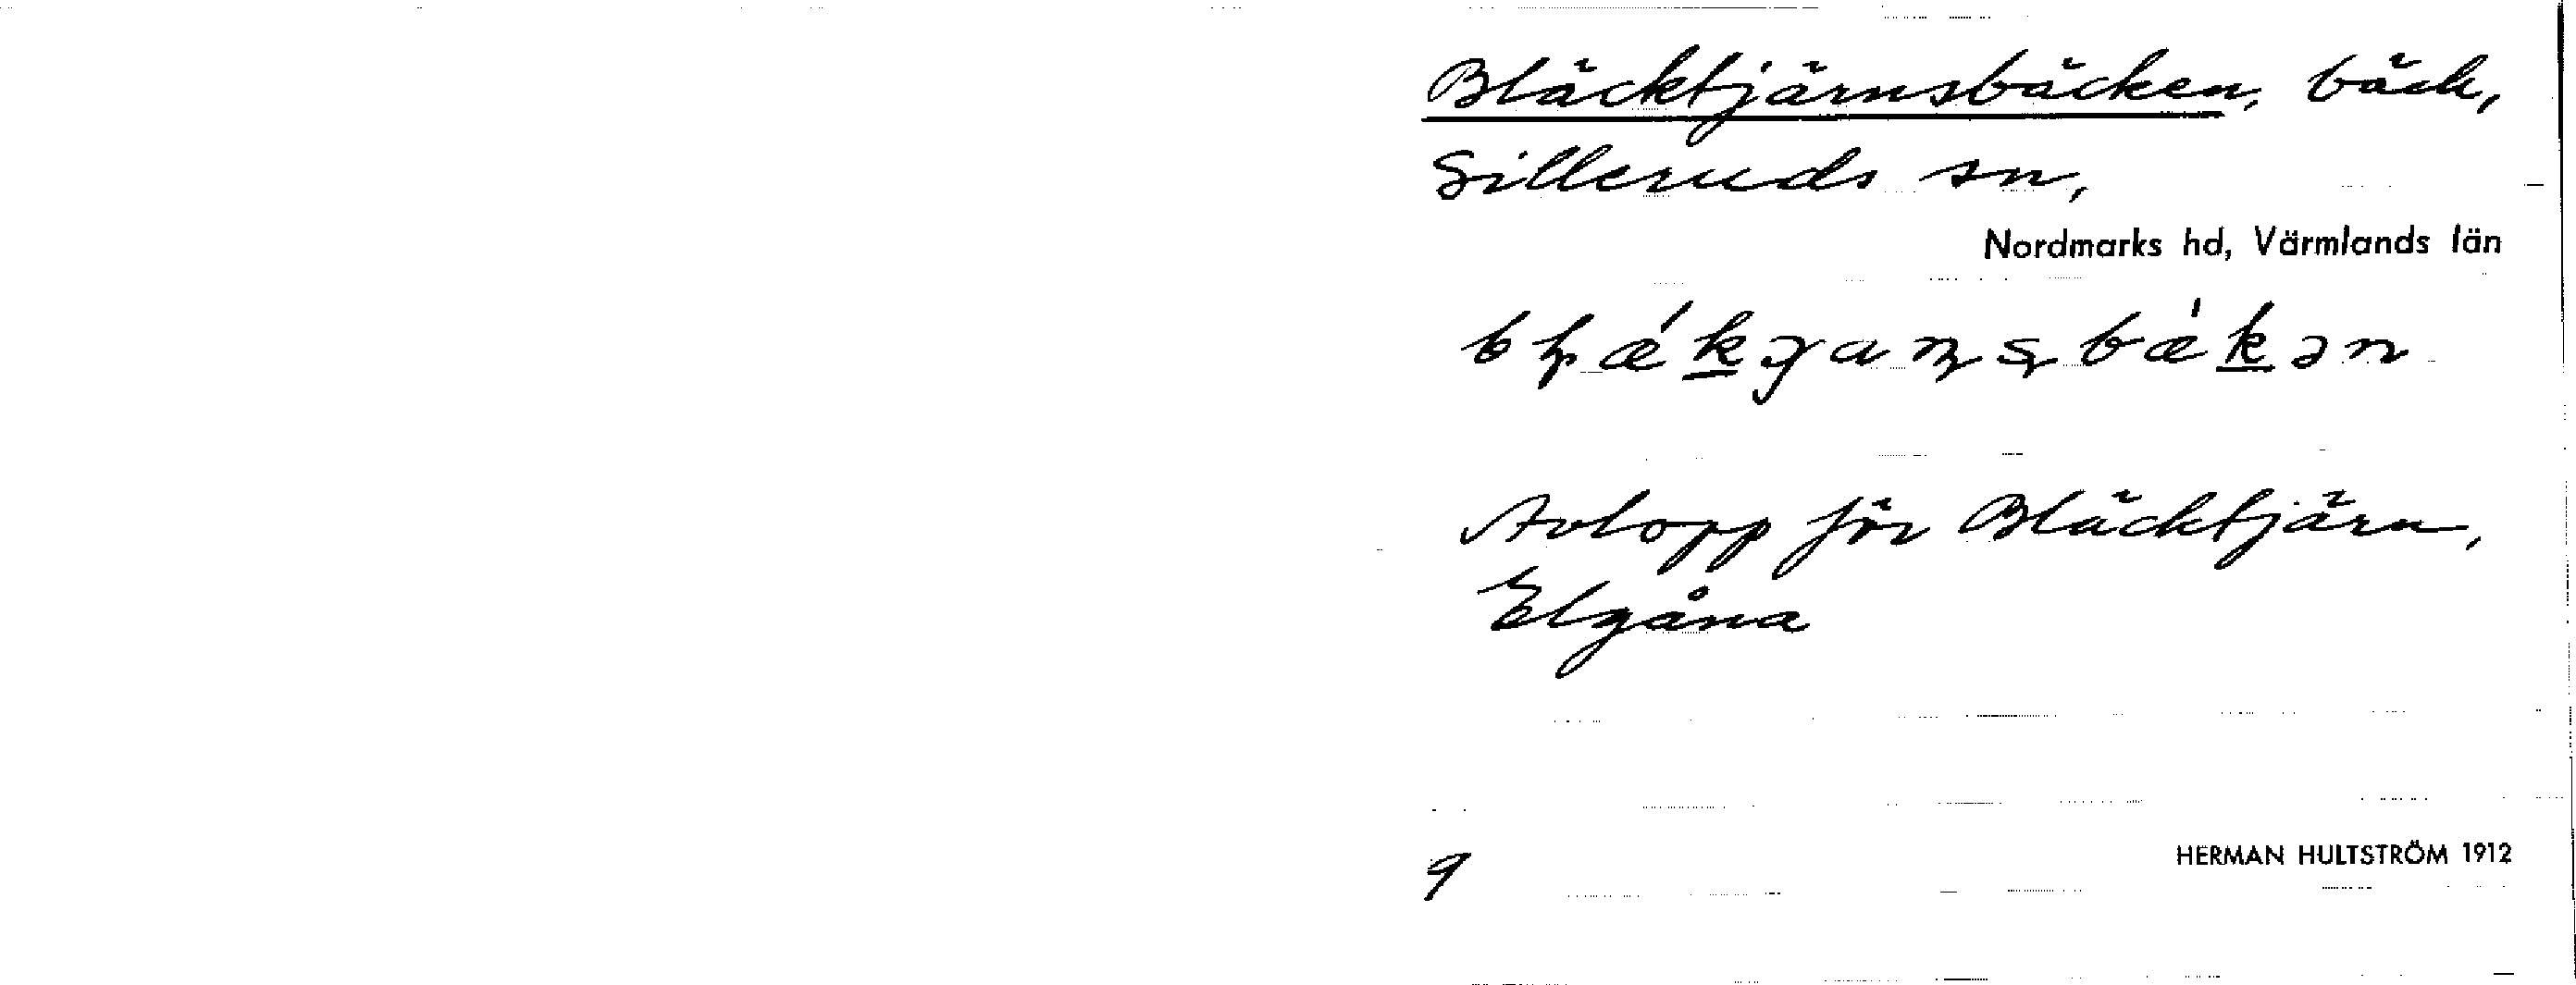 Bläcktjärnsbäcken, bäck,
Silleruds sn,
Nordmarks hd, Värmlands län
Avlopp för Bläcktjärn,
Elgåna
9
HERMAN HULTSTRÖM 1912